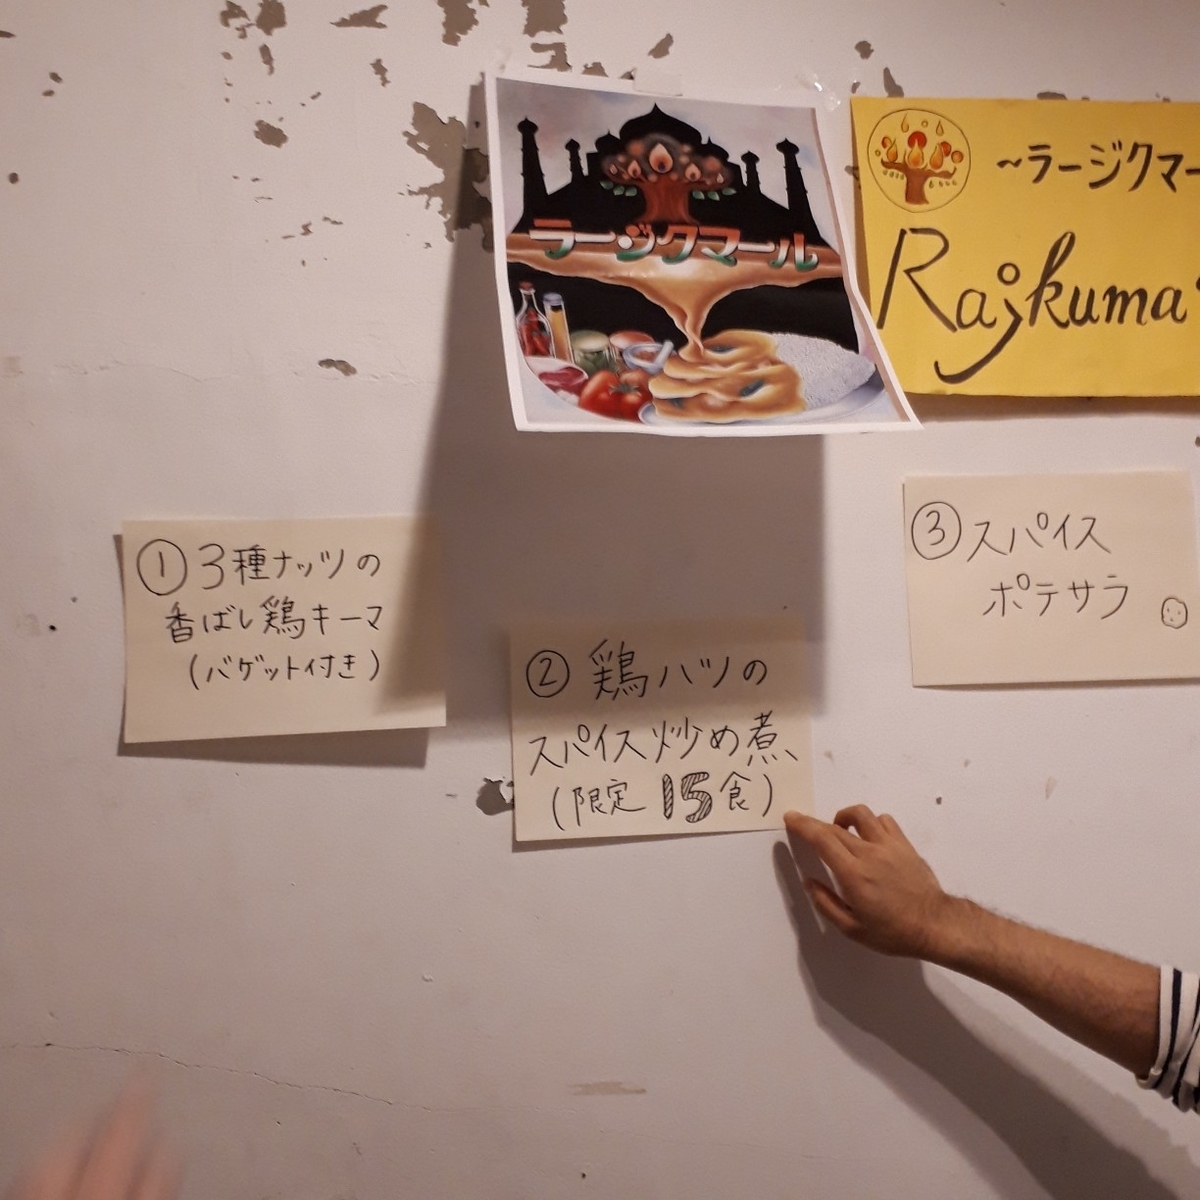 ラージクマール
～ラージクマー
Rajkuma
① 3種ナッツの
香ばし鶏キーマ
(バゲット付き)
② 鶏ハツの
スパイス炒め煮、
(限定 15食)
③ スパイス
ポテサラ